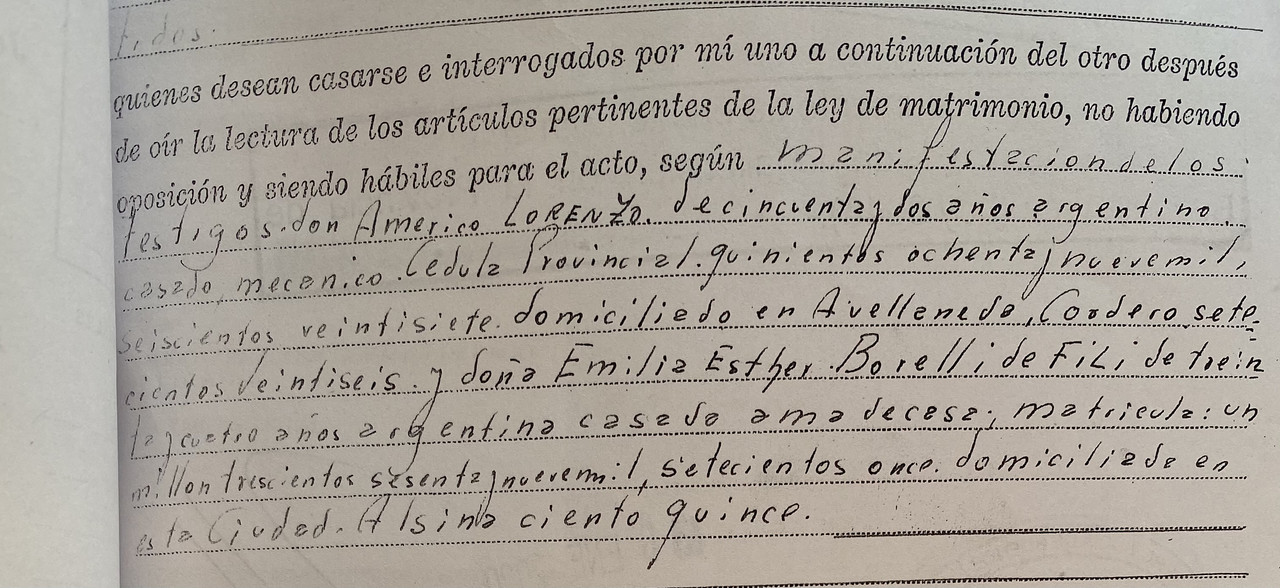 tidos.
quienes desean casarse e interrogados por mí uno a continuación del otro después
de oír la lectura de los artículos pertinentes de la ley de matrimonio, no habiendo
oposición y siendo hábiles para el acto, según manifestacion de los
testigos. don Americo LORENZO. de cincuenta y dos años argentino.
casado, mecanico. Cedula Provincial. quinientos ochenta y nueve mil,
seiscientos veintisiete. domiciliado en Avellaneda, Cordero sete-
cientos veintiseis. y doña Emilia Esther Borelli de FiLi de trein
ta y cuatro años argentina casada ama de casa; matricula: un
millon trescientos sesenta y nueve mil, setecientos once. domiciliada en
esta Ciudad. Alsina ciento quince.